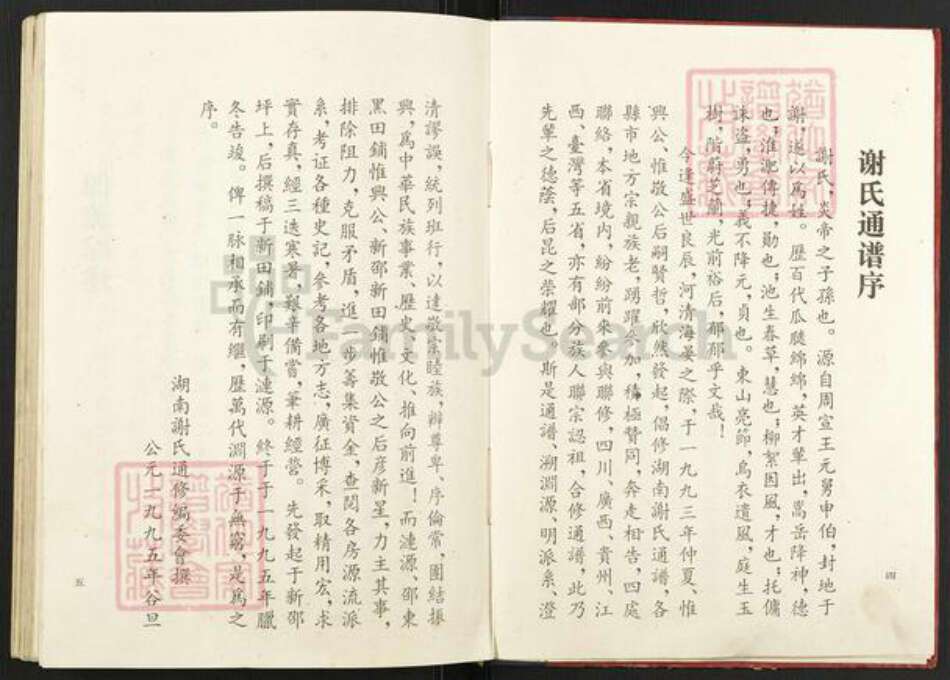 谢氏通谱序
謝氏，炎帝之子孫也。源自周宣王元舅申伯，封地于
謝，遂以爲姓。歷百代瓜瓞綿綿，英才輩出，嵩岳降神，德
也；淮淝傳捷，勛也；池生春草，慧也；柳絮因風，才也；托傭
誅盗，勇也；義不降元，貞也。東山亮節，烏衣遺風，庭生玉
樹，階蔚芝蘭，光前裕后，郁郁乎文哉！
今逢盛世良辰，河清海晏之際，于一九九三年仲夏、惟
興公、惟敬公后嗣賢哲，欣然發起，倡修湖南謝氏通譜，各
縣市地方宗親族老，踴躍參加，積極贊同，奔走相告，四處
聯絡，本省境内，紛紛前來參與聯修，四川、廣西、貴州、江
西、臺灣等五省，亦有部分族人聯宗認祖，合修通譜，此乃
先輩之德蔭，后昆之荣耀也，斯是通譜、溯淵源、明派系、澄
四
清謬誤，統列班行，以達敬宗睦族，辯尊卑、序倫常，團結振
興，爲中華民族事業、歷史、文化、推向前進！而漣源、邵東
黑田鋪惟興公、新邵新田鋪惟敬公之后彦新星，力主其事，
排除阻力，克服矛盾，進一步籌集資金，查閲各房源流派
系，考证各種史記，參考各地方志，廣征博采，取精用宏，求
實存真，經三迭寒暑，艱辛備嘗，筆耕經營。先發起于新邵
坪上，后撰稿于新田鋪，印刷于漣源。終于于一九九五年臘
冬告竣。俾一脉相承而有繼，歷萬代淵源于無窮、是爲之
序。
湖南謝氏通修編委會撰
公元一九九五年谷旦
五
FamilySearch